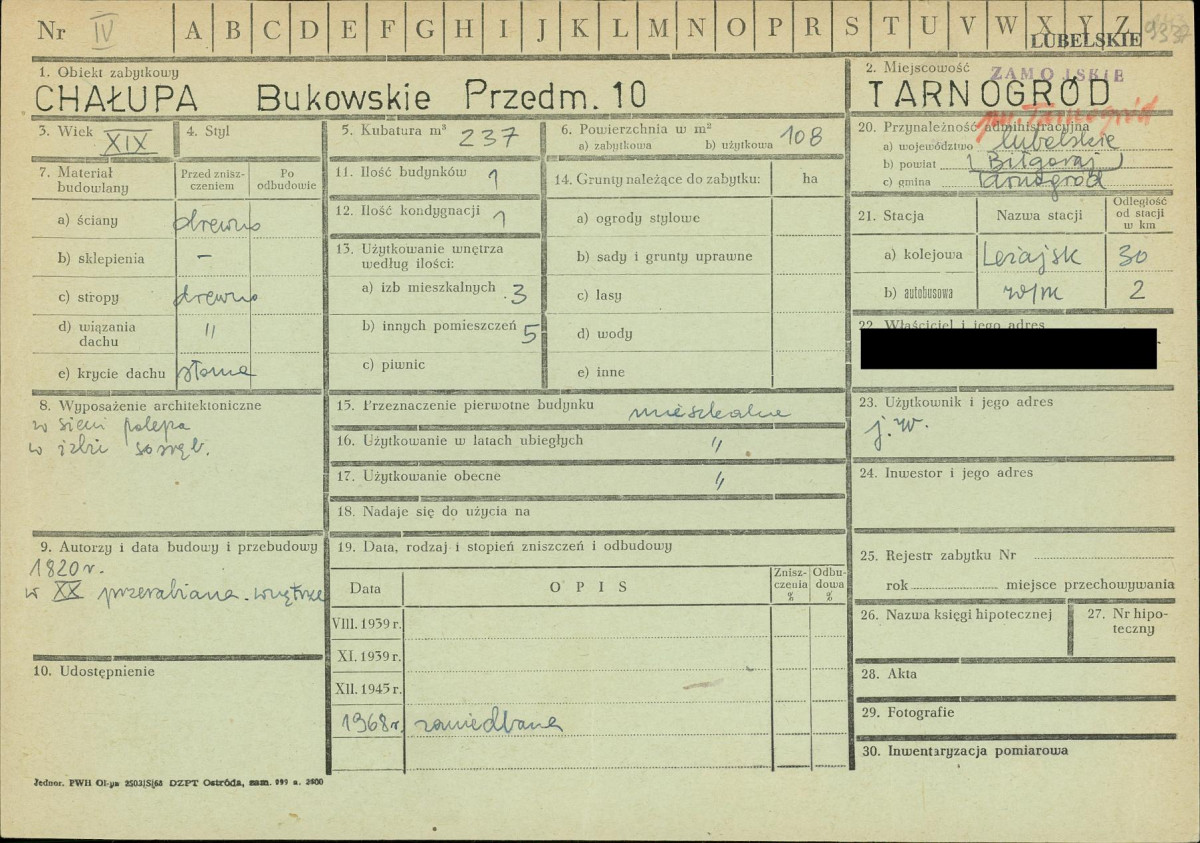 Nr IV A B C D E F G H I J K L M N O P R S T U V W X Y Z
LUBELSKIE
1. Obiekt zabytkowy
CHAŁUPA Bukowskie Przedm. 10
2. Miejscowość ZAMOJSKIE
TARNOGRÓD
gm. Tarnogród
3. Wiek XIX
4. Styl
5. Kubatura m³ 237
6. Powierzchnia w m²
a) zabytkowa b) użytkowa 108
7. Materiał budowlany
Przed zniszczeniem
Po odbudowie
a) ściany drewno
b) sklepienia –
c) stropy drewno
d) wiązania dachu "
e) krycie dachu słoma
8. Wyposażenie architektoniczne
w sieni polepa
w izbie sosręb.
9. Autorzy i data budowy i przebudowy
1820 r.
w XX przerabiana wnętrze
10. Udostępnienie
11. Ilość budynków 1
12. Ilość kondygnacji 1
13. Użytkowanie wnętrza
według ilości:
a) izb mieszkalnych 3
b) innych pomieszczeń 5
c) piwnic
14. Grunty należące do zabytku: ha
a) ogrody stylowe
b) sady i grunty uprawne
c) lasy
d) wody
e) inne
15. Przeznaczenie pierwotne budynku mieszkalne
16. Użytkowanie w latach ubiegłych "
17. Użytkowanie obecne "
18. Nadaje się do użycia na
19. Data, rodzaj i stopień zniszczeń i odbudowy
Data OPIS Zniszczenia % Odbudowa %
VIII. 1939 r.
XI. 1939 r.
XII. 1945 r.
1968 r. zaniedbana
20. Przynależność administracyjna
a) województwo lubelskie
b) powiat (Biłgoraj)
c) gmina Tarnogród
21. Stacja Nazwa stacji Odległość od stacji w km
a) kolejowa Leżajsk 30
b) autobusowa w/m 2
22. Właściciel i jego adres
23. Użytkownik i jego adres
j. w.
24. Inwestor i jego adres
25. Rejestr zabytku Nr
rok miejsce przechowywania
26. Nazwa księgi hipotecznej
27. Nr hipoteczny
28. Akta
29. Fotografie
30. Inwentaryzacja pomiarowa
Jednor. PWH Ol-yn 2503/S/68 DZPT Ostróda, zam. 999 n. 2500